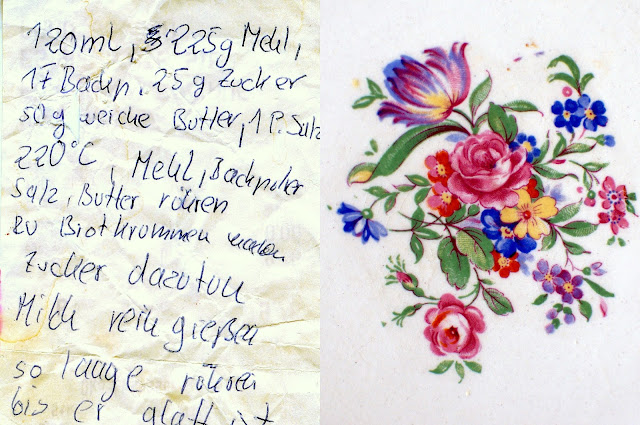 120ml, 225g Mehl,
1 P Backp. 25 g Zucker
50g weiche Butter, 1 P. Salz
220°C, Mehl, Backpulver
Salz, Butter rühren
zu Brotkrummen machen
Zucker dazutun
Milch rein gießen
so lange rühren
bis er glatt ist